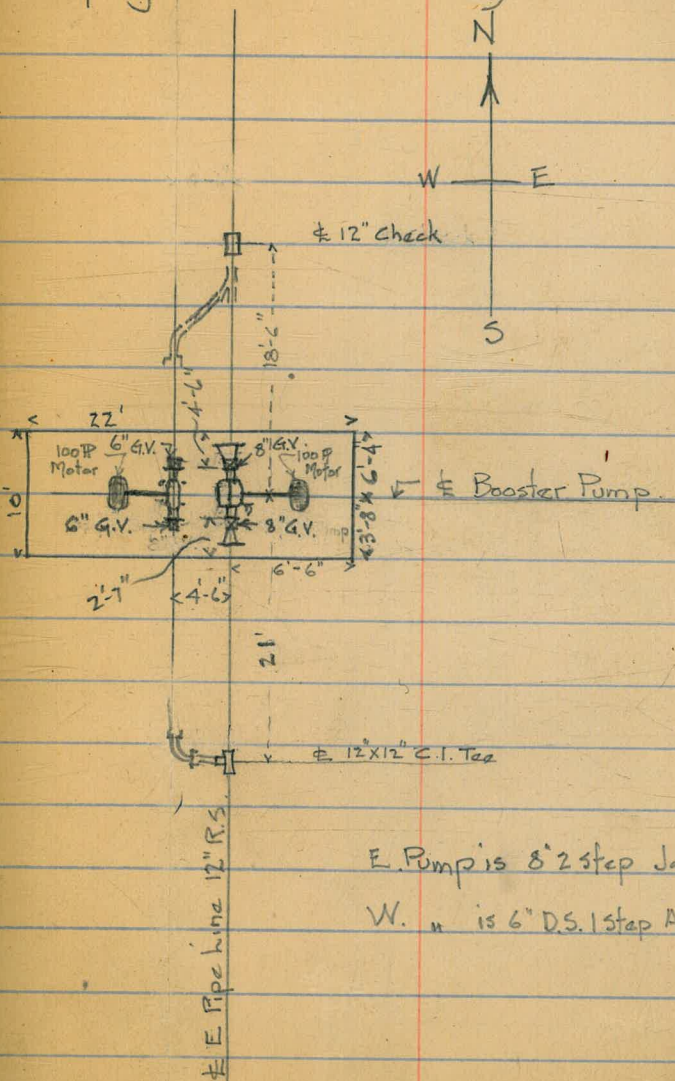 N
W E
S
℄ 12" Check
18'-6"
4'-6"
22'
100 HP Motor
6" G.V.
8" G.V.
100 HP Motor
10'
3'-8"
6'-4"
℄ Booster Pump.
6" G.V.
8" G.V.
6'-6"
2'-7"
4'-6"
21'
℄ 12"X12" C.I. Tee
℄ E Pipe Line 12" R.S.
E. Pump is 8" 2 step
W. " is 6" D.S. 1 step